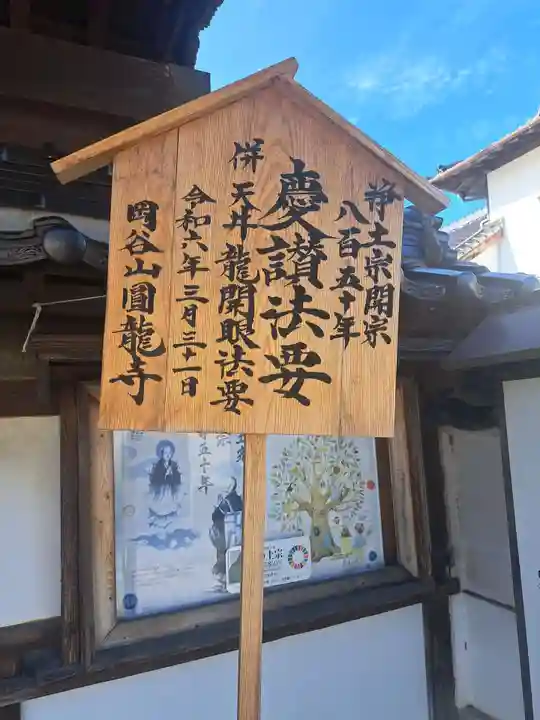 浄土宗開宗
八百五十年
慶讃法要
併 天井龍開眼法要
令和六年三月三十一日
岡谷山圓龍寺
五十年
土宗